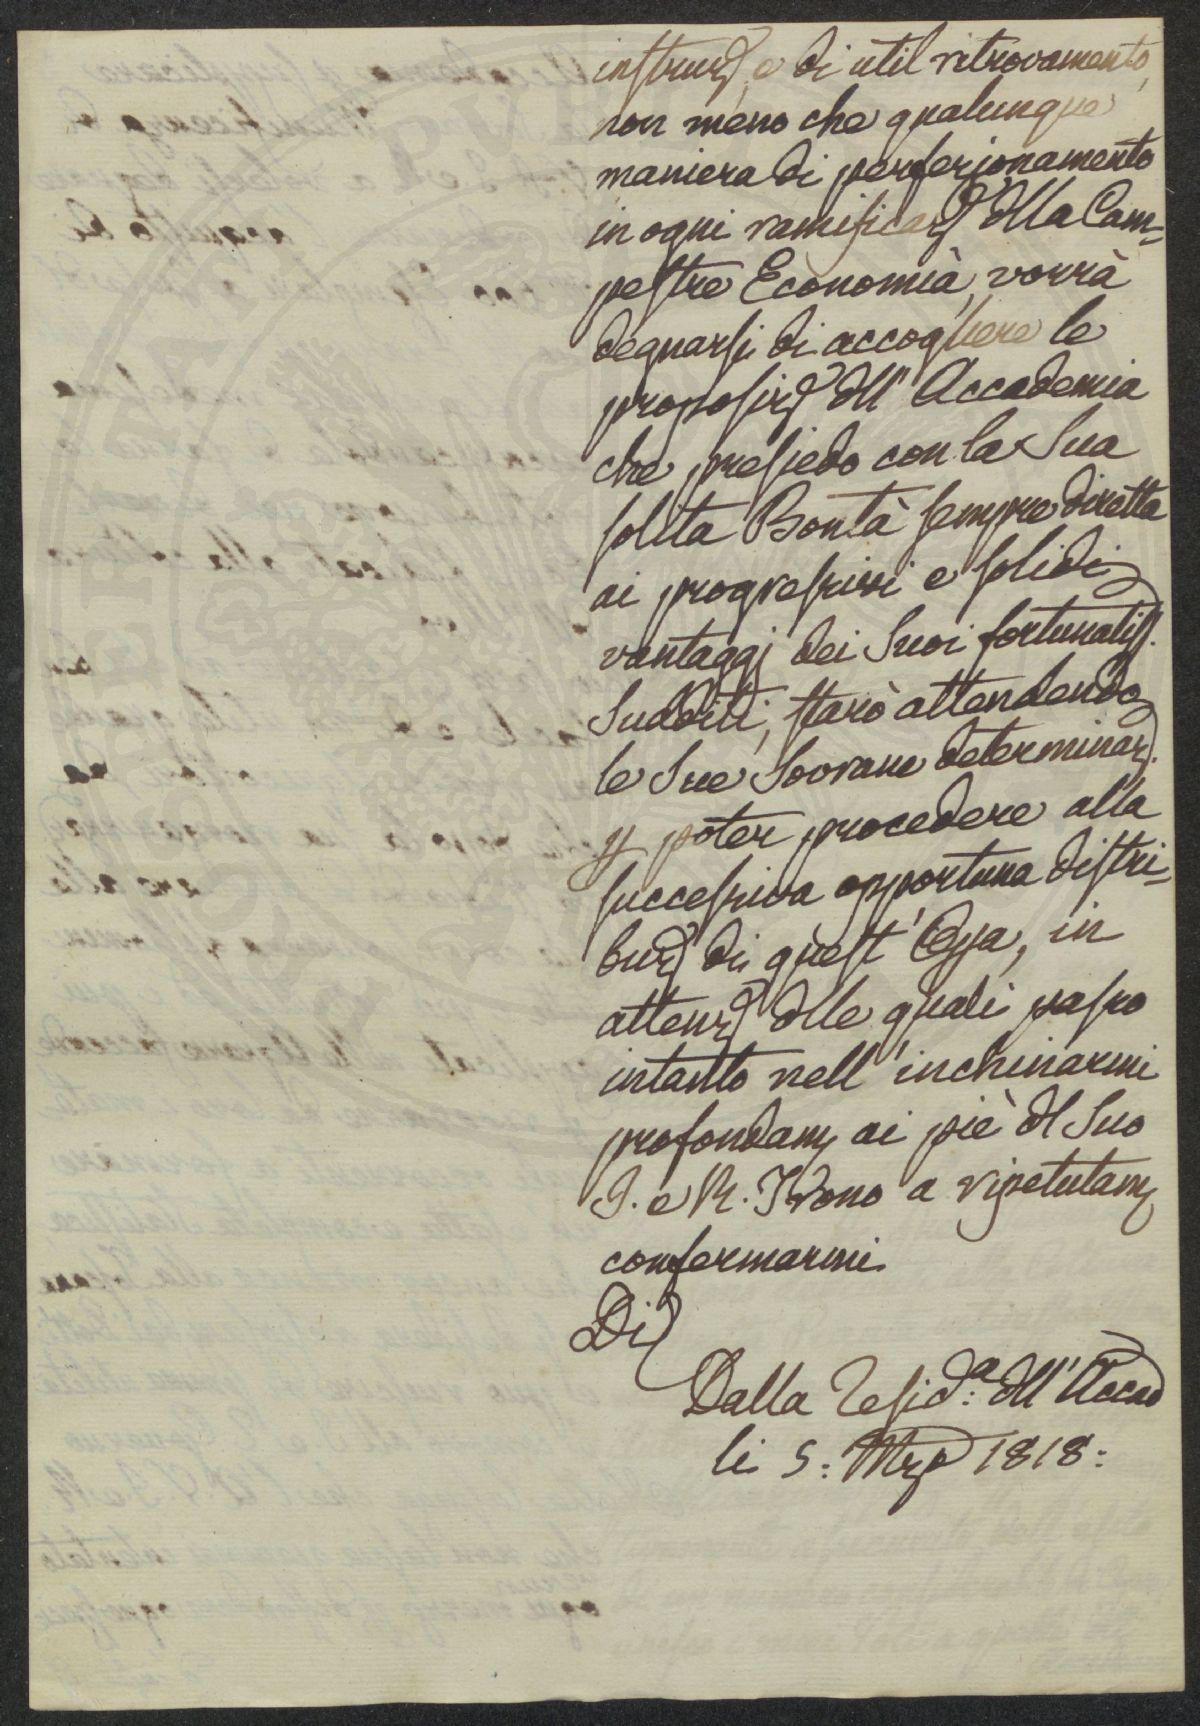 instruz. e di util ritrovamento,
non meno che qualunque
maniera di perfezionamento
in ogni ramificaz. dlla Cam=
pestre Economia, vorrà
degnarsi di accogliere le
proposiz. dll' Accademia
che presiedo con la Sua
solita Bontà sempre diretta
ai progressivi e solidi
vantaggj dei Suoi fortunatiss.
Sudditi, starò attendendo
le Sue Sovrane determinaz.
p poter procedere alla
successiva opportuna distri=
buz. di quest', in
attenz. dlle quali passo
intanto nell' inchinarmi
profondam. ai piè dl Suo
I. e R. Trono a ripetutam.
confermarmi
Di
Dalla Resid.a dll' Accad
li 5: Mzo 1818: